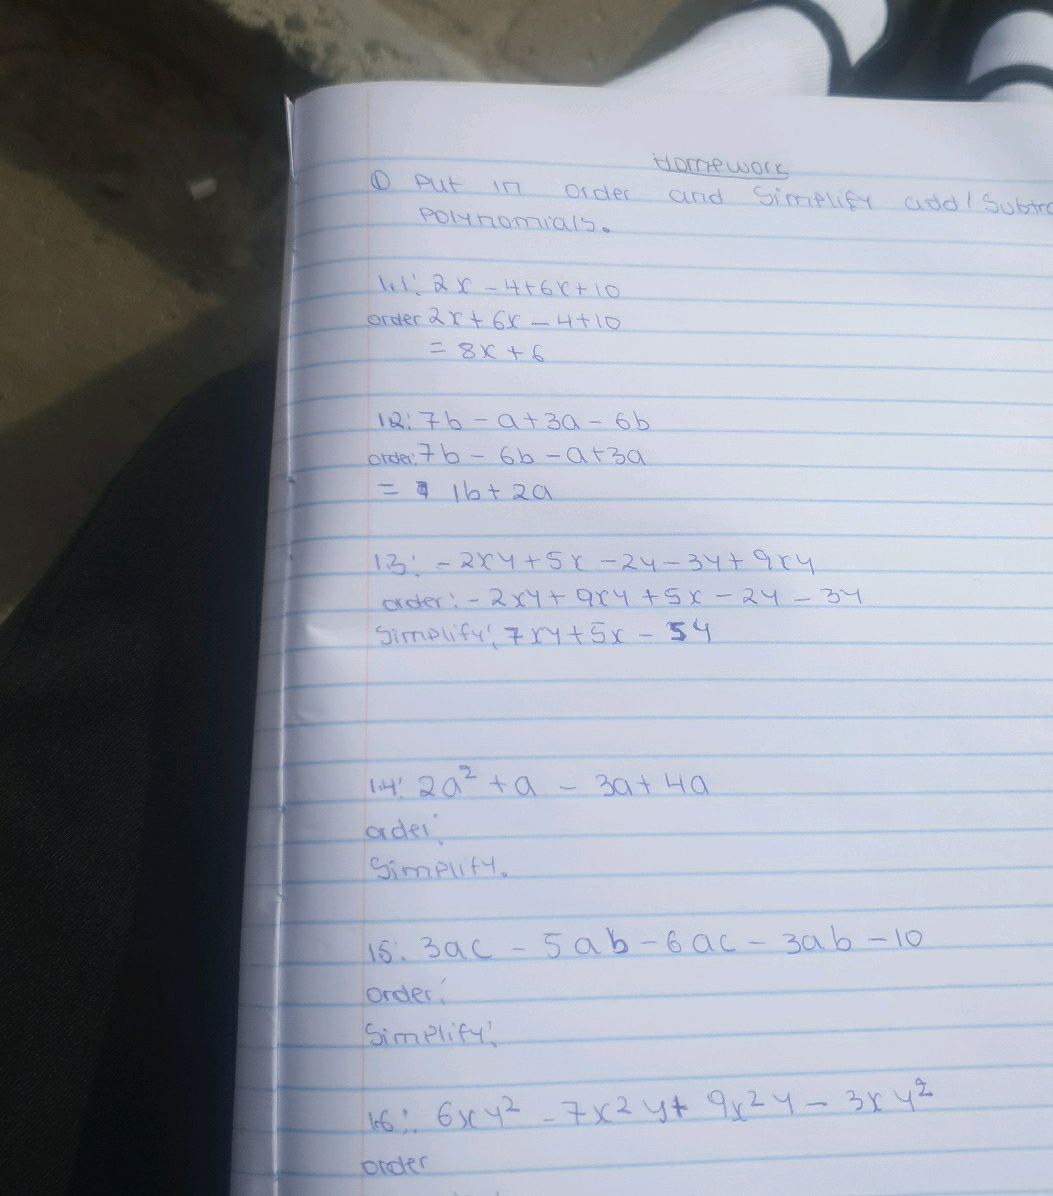 Homework
① Put in order and simplify add/subtra
Polynomials.
1.1: 2x - 4+6x+10
order 2x + 6x - 4+10
= 8x + 6
1.2: 7b - a+3a - 6b
order: 7b - 6b - a+3a
= 1b + 2a
1.3: - 2xy + 5x - 2y - 3y + 9xy
order: - 2xy + 9xy + 5x - 2y - 3y
Simplify: 7xy + 5x - 5y
1.4: 2a² + a - 3a + 4a
order:
Simplify.
1.5: 3ac - 5ab - 6ac - 3ab - 10
order:
Simplify:
1.6: 6xy² - 7x²y + 9x²y - 3xy²
order